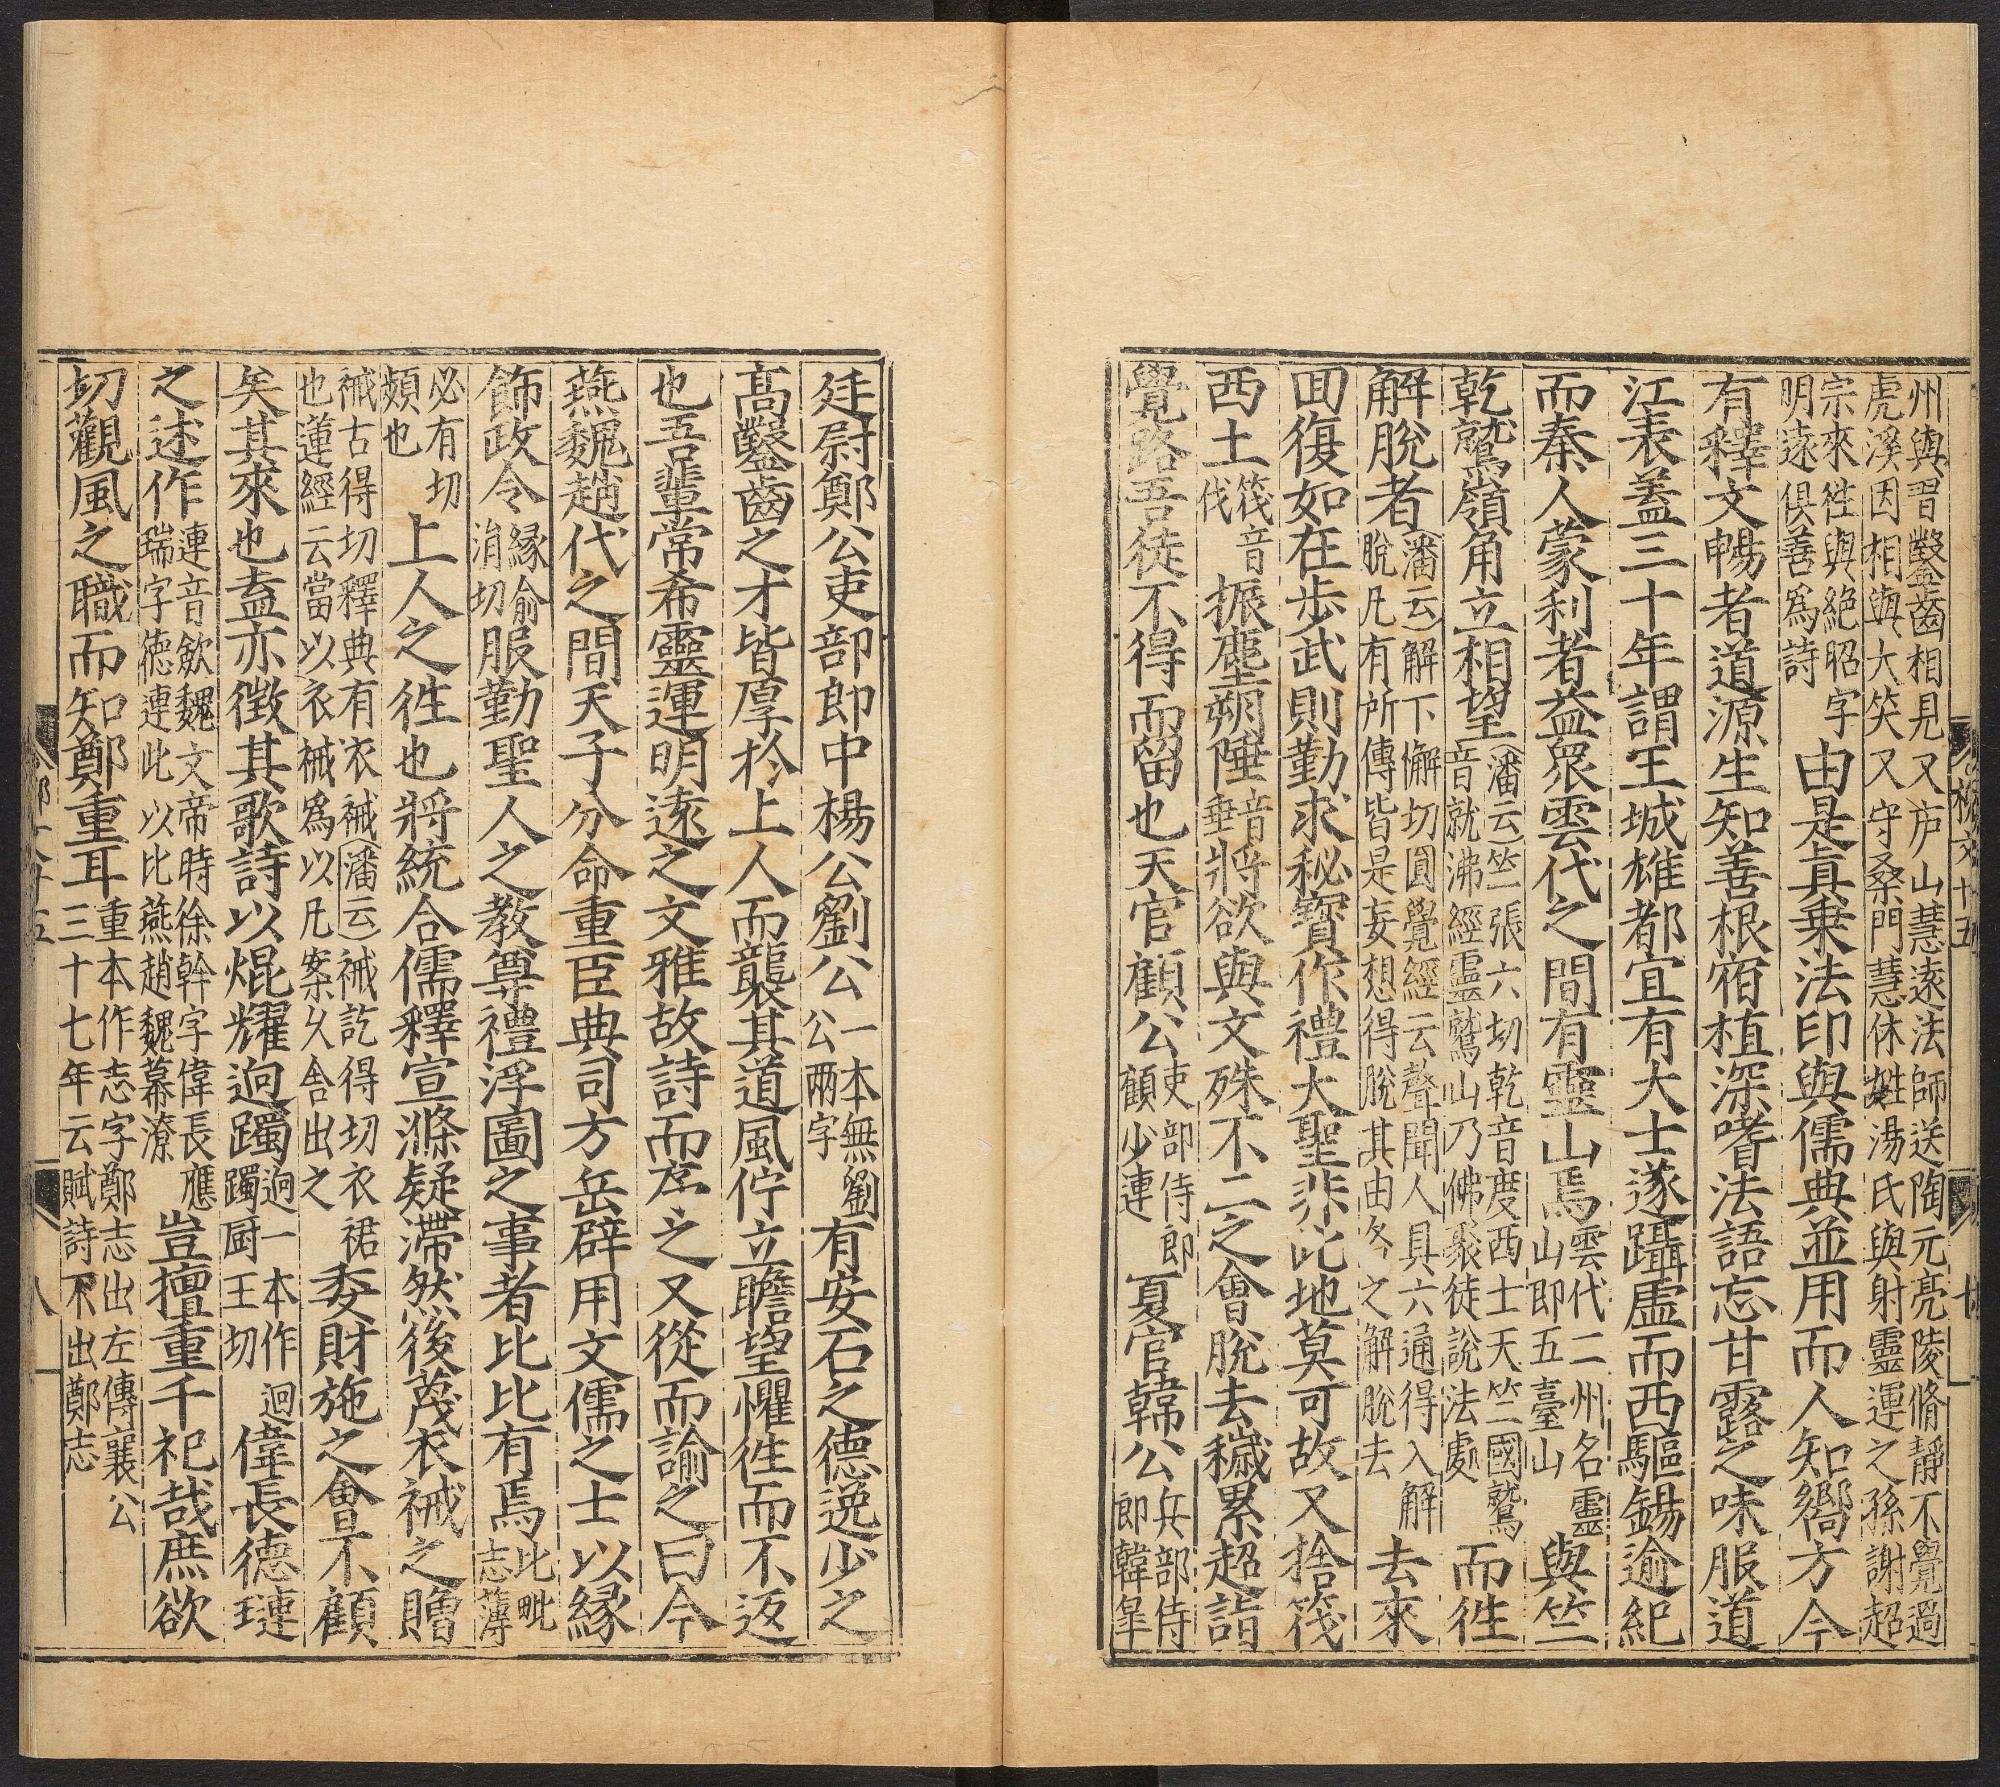 州與習鑿齒相見又庐山慧遠法師送陶元亮陵脩靜不覺過
虎溪因相與大笑又守桑門慧休姓湯氏與射靈運之孫謝超
宗來徃與絶昭字
明遠俱善爲詩
由是真乗法印與儒典並用而人知嚮方今
有釋文暢者道源生知善根宿植深嗜法語忘甘露之味服道
江表盖三十年謂王城雄都宜有大士遂躡虛而西驅錫逾紀
而秦人蒙利者益衆雲代之間有靈山焉
雲代二州名靈
山即五臺山
與竺
乾鷲嶺角立相望
潘云竺張六切乾音度西士天竺國鷲
音就沸經靈鷲山乃佛聚徒說法處
而徃
解脫者
潘云解下懈切圓覺經云聲聞人具六通得入解
脫凡有所傳皆是妄想得脫其由各之解脫去
去來
回復如在步武則勤求秘寳作禮大聖非此地莫可故又捨筏
西土
筏音
伐
振塵朔陲
音
垂
將欲與文殊不二之會脫去穢累超詣
覺路吾徒不得而留也天官顧公
吏部侍郎
顧少連
夏官韓公
兵部侍
郎韓皐
柳文十五
廷尉鄭公吏部郎中楊公劉公
一本無劉
公兩字
有安石之德逸少之
高鑿齒之才皆厚於上人而襲其道風佇立瞻望懼徃而不返
也吾輩常希靈運明遠之文雅故詩而序之又從而諭之曰今
燕魏趙代之間天子分命重臣典司方岳辟用文儒之士以緣
飾政令
緣俞
涓切
服勤聖人之教尊禮浮圖之事者比比有焉
比毗
志薄
必有切
頻也
上人之徃也將統合儒釋宣滌疑滯然後蔑衣裓之贈
裓古得切釋典有衣裓潘云裓訖得切衣裾
也蓮經云當以衣裓爲以凡案久舍出之
委財施之會不顧
矣其來也盍亦徵其歌詩以焜耀逈躅
逈一本作迴
躅厨王切
偉長德璉
之述作
連音歛魏文帝時徐幹字偉長應
瑞字德連此以比燕趙魏幕潦
豈擅重千祀哉庶欲
切觀風之職而知鄭重耳
重本作志字鄭志出左傳襄公
三十七年云賦詩不出鄭志
八